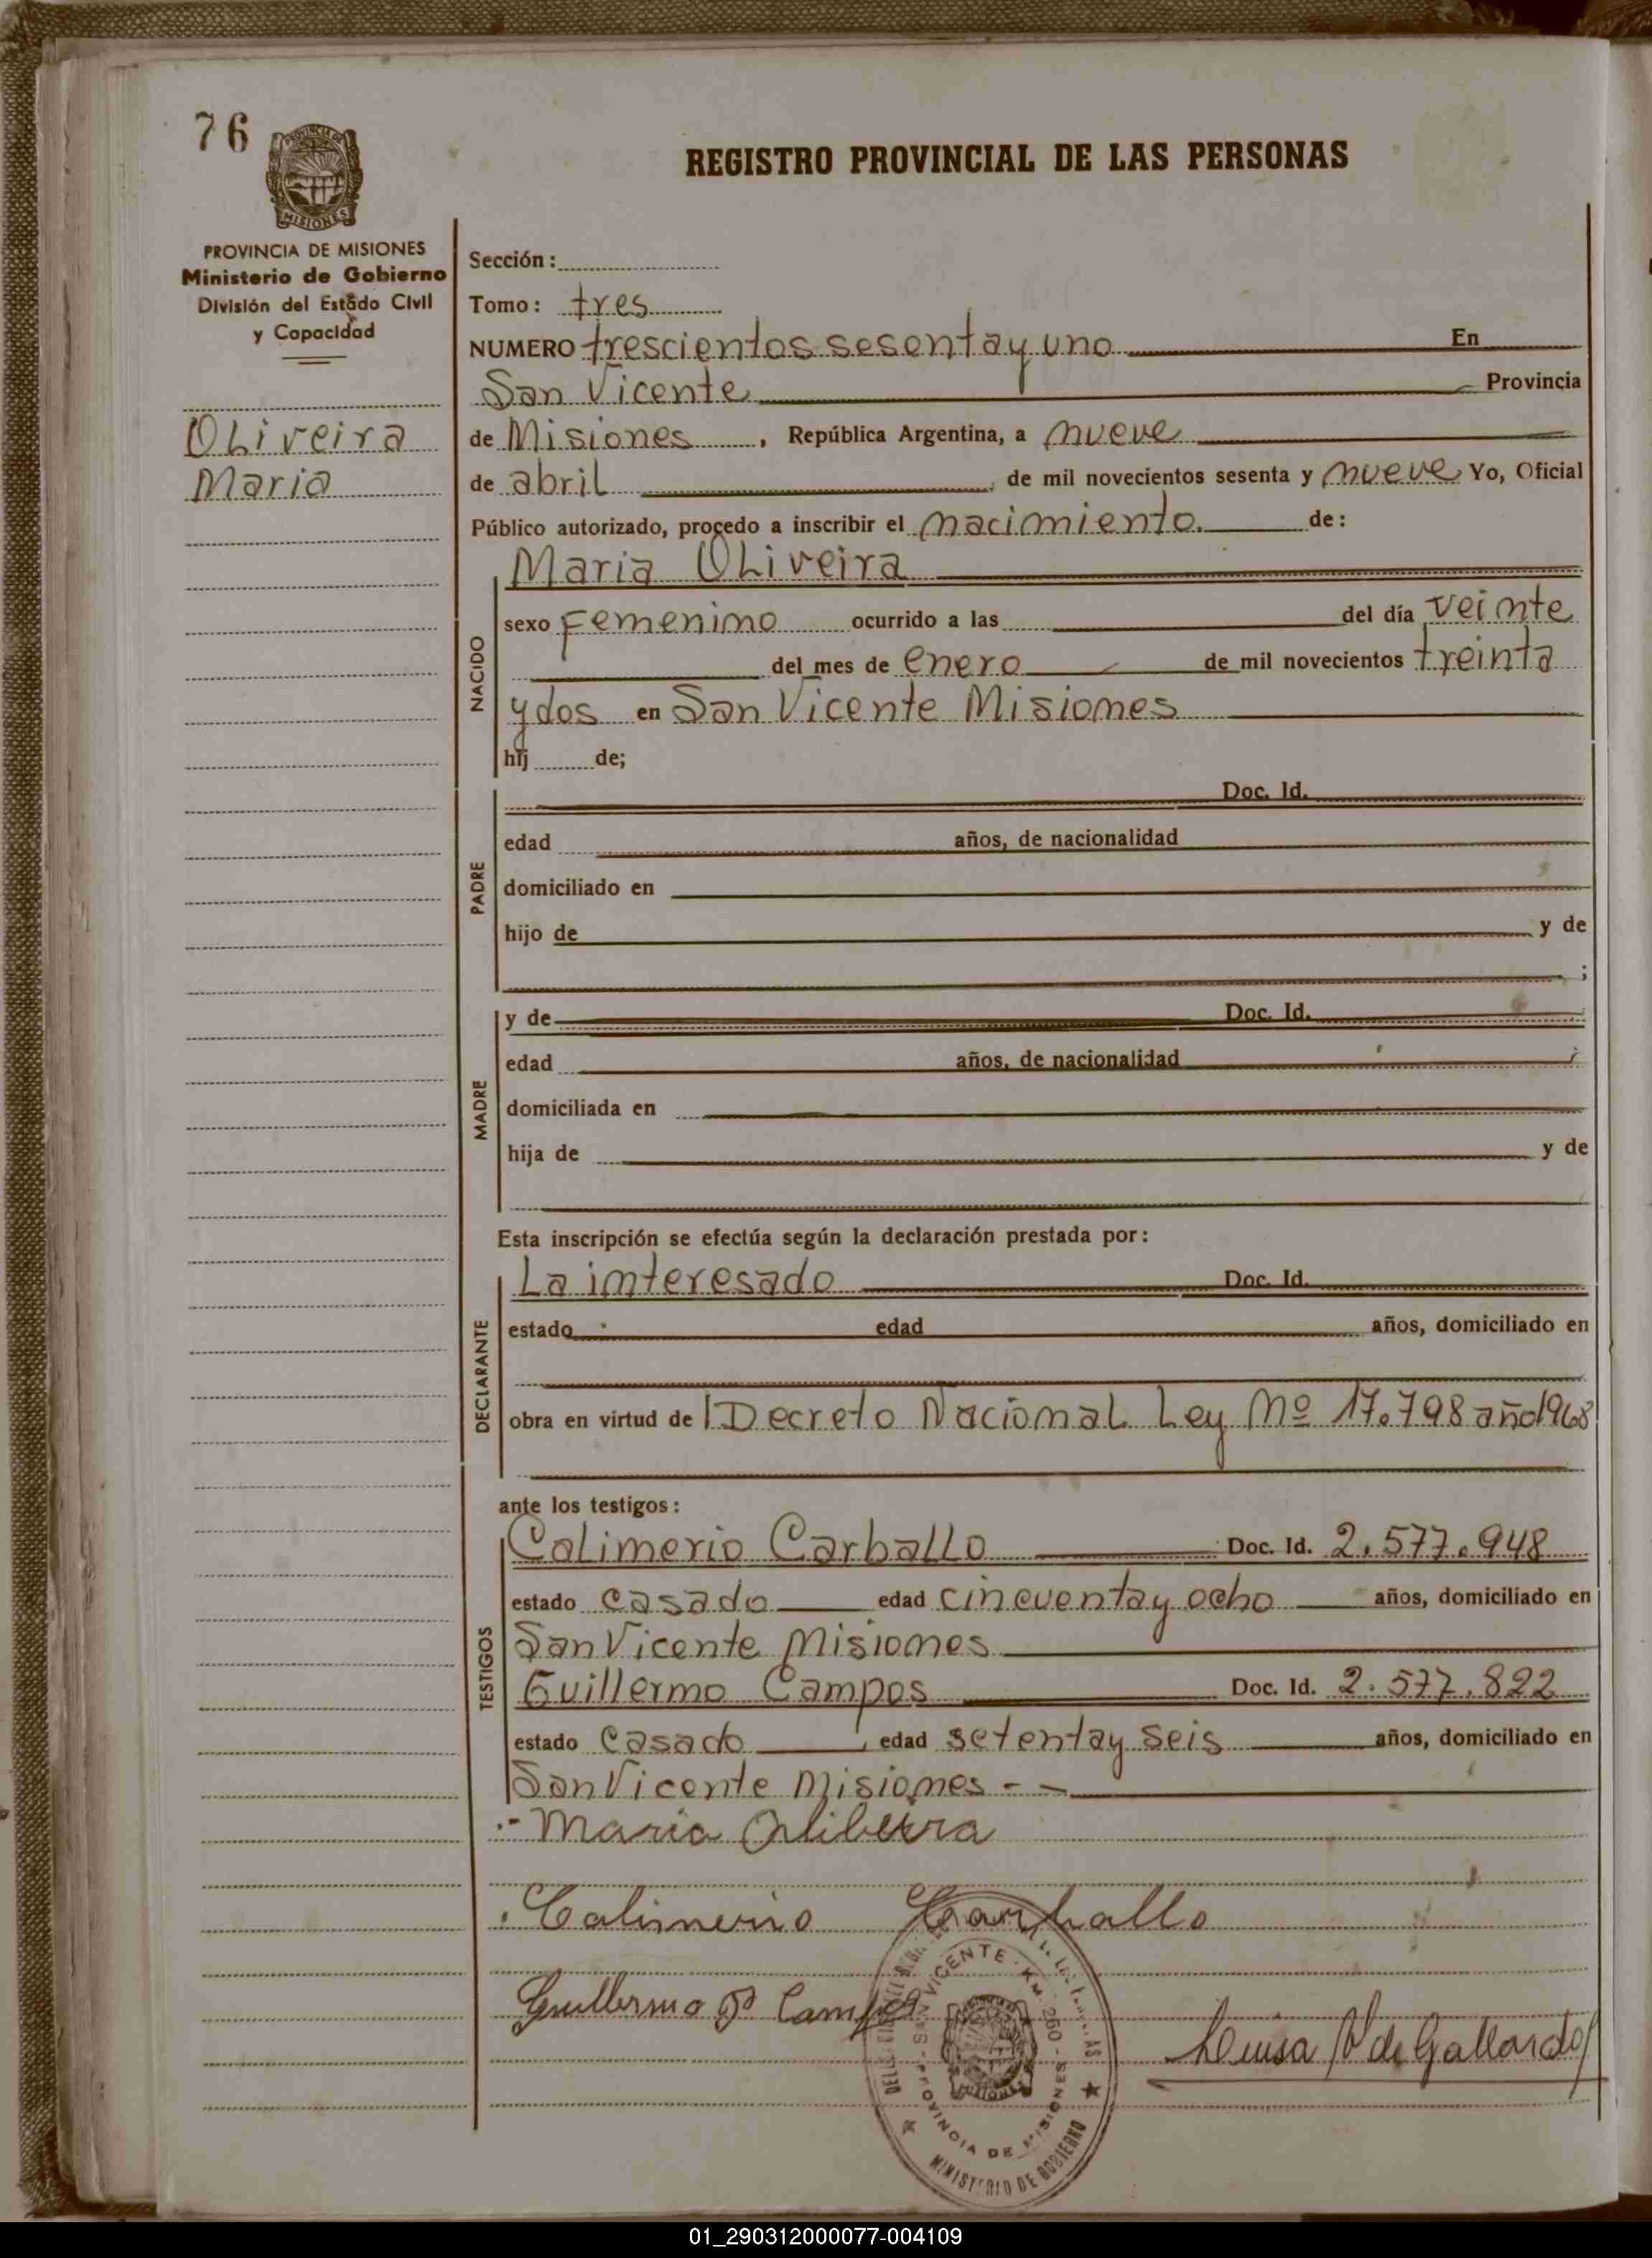 76
REGISTRO PROVINCIAL DE LAS PERSONAS
MISIONES
PROVINCIA DE MISIONES
Ministerio de Gobierno
División del Estado Civil
y Capacidad
Oliveira
Maria
Sección:
Tomo: tres
NUMERO trescientos sesenta y uno En
San Vicente Provincia
de Misiones, República Argentina, a nueve
de abril de mil novecientos sesenta y nueve Yo, Oficial
Público autorizado, procedo a inscribir el nacimiento. de:
NACIDO
Maria Oliveira
sexo Femenino ocurrido a las del día veinte
del mes de enero de mil novecientos treinta
y dos en San Vicente Misiones
hij de;
PADRE
Doc. Id.
edad años, de nacionalidad
domiciliado en
hijo de y de
;
MADRE
y de Doc. Id.
edad años, de nacionalidad
domiciliada en
hija de y de
Esta inscripción se efectúa según la declaración prestada por:
DECLARANTE
La interesado Doc. Id.
estado edad años, domiciliado en
obra en virtud de Decreto Nacional Ley Nº 17.798 año 1968
ante los testigos:
TESTIGOS
Calimerio Carballo Doc. Id. 2.577.948
estado casado edad cincuenta y ocho años, domiciliado en
San Vicente Misiones
Guillermo Campos Doc. Id. 2.577.822
estado casado edad setenta y seis años, domiciliado en
San Vicente Misiones - -
Maria Oliberra
Calimerio Carballo
Guillermo Campos
Luisa de Gallardo
SAN VICENTE - KM. 260 -
PROVINCIA DE MISIONES
MINISTERIO DE GOBIERNO
01_290312000077-004109